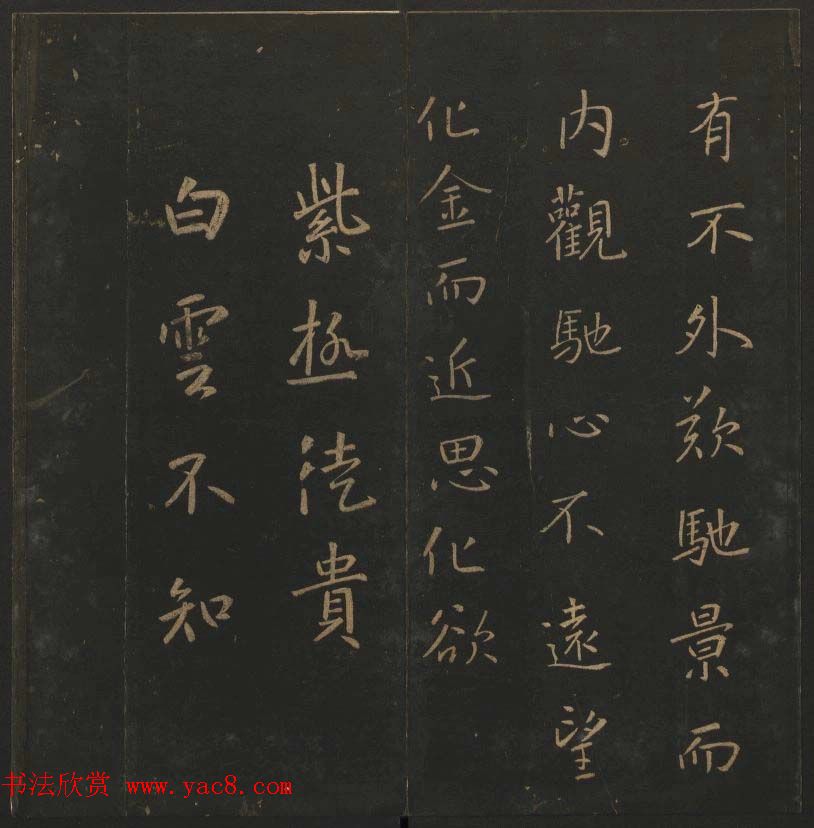 有不外馳景而
内觀馳心不遠望
化金而近思化欲
紫極貴
白雲不知
书法欣赏 www.yac8.com